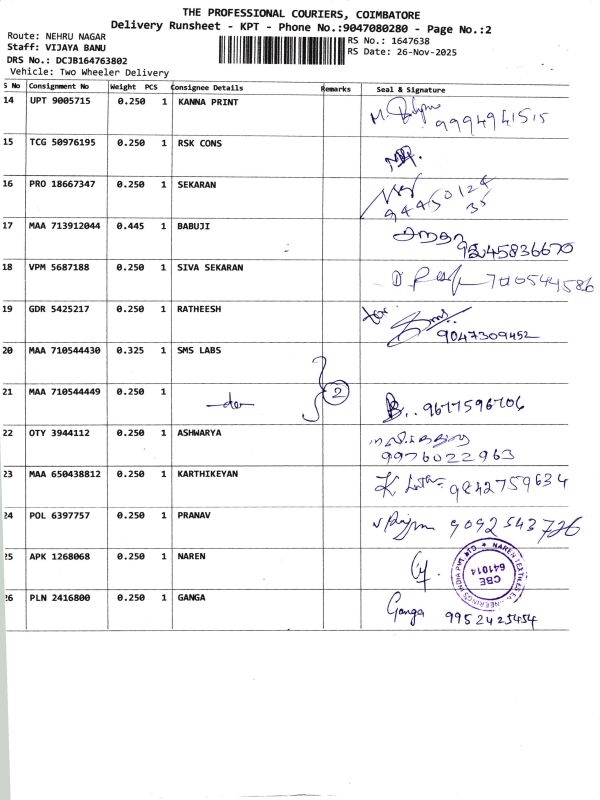 THE PROFESSIONAL COURIERS, COIMBATORE
Delivery Runsheet - KPT - Phone No.:9047080280 - Page No.:2
Route: NEHRU NAGAR
Staff: VIJAYA BANU
DRS No.: DCJB164763802
Vehicle: Two Wheeler Delivery
RS No.: 1647638
RS Date: 26-Nov-2025
S No Consignment No Weight PCS Consignee Details Remarks Seal & Signature
14 UPT 9005715 0.250 1 KANNA PRINT
9994941515
15 TCG 50976195 0.250 1 RSK CONS
16 PRO 18667347 0.250 1 SEKARAN
94450124
35
17 MAA 713912044 0.445 1 BABUJI
45836670
18 VPM 5687188 0.250 1 SIVA SEKARAN
700544586
19 GDR 5425217 0.250 1 RATHEESH
9047309452
20 MAA 710544430 0.325 1 SMS LABS
2
21 MAA 710544449 0.250 1
9677596706
22 OTY 3944112 0.250 1 ASHWARYA
9976022963
23 MAA 650438812 0.250 1 KARTHIKEYAN
K 9842759634
24 POL 6397757 0.250 1 PRANAV
9092543726
25 APK 1268068 0.250 1 NAREN
CBE
641014
26 PLN 2416800 0.250 1 GANGA
Ganga 9952425454